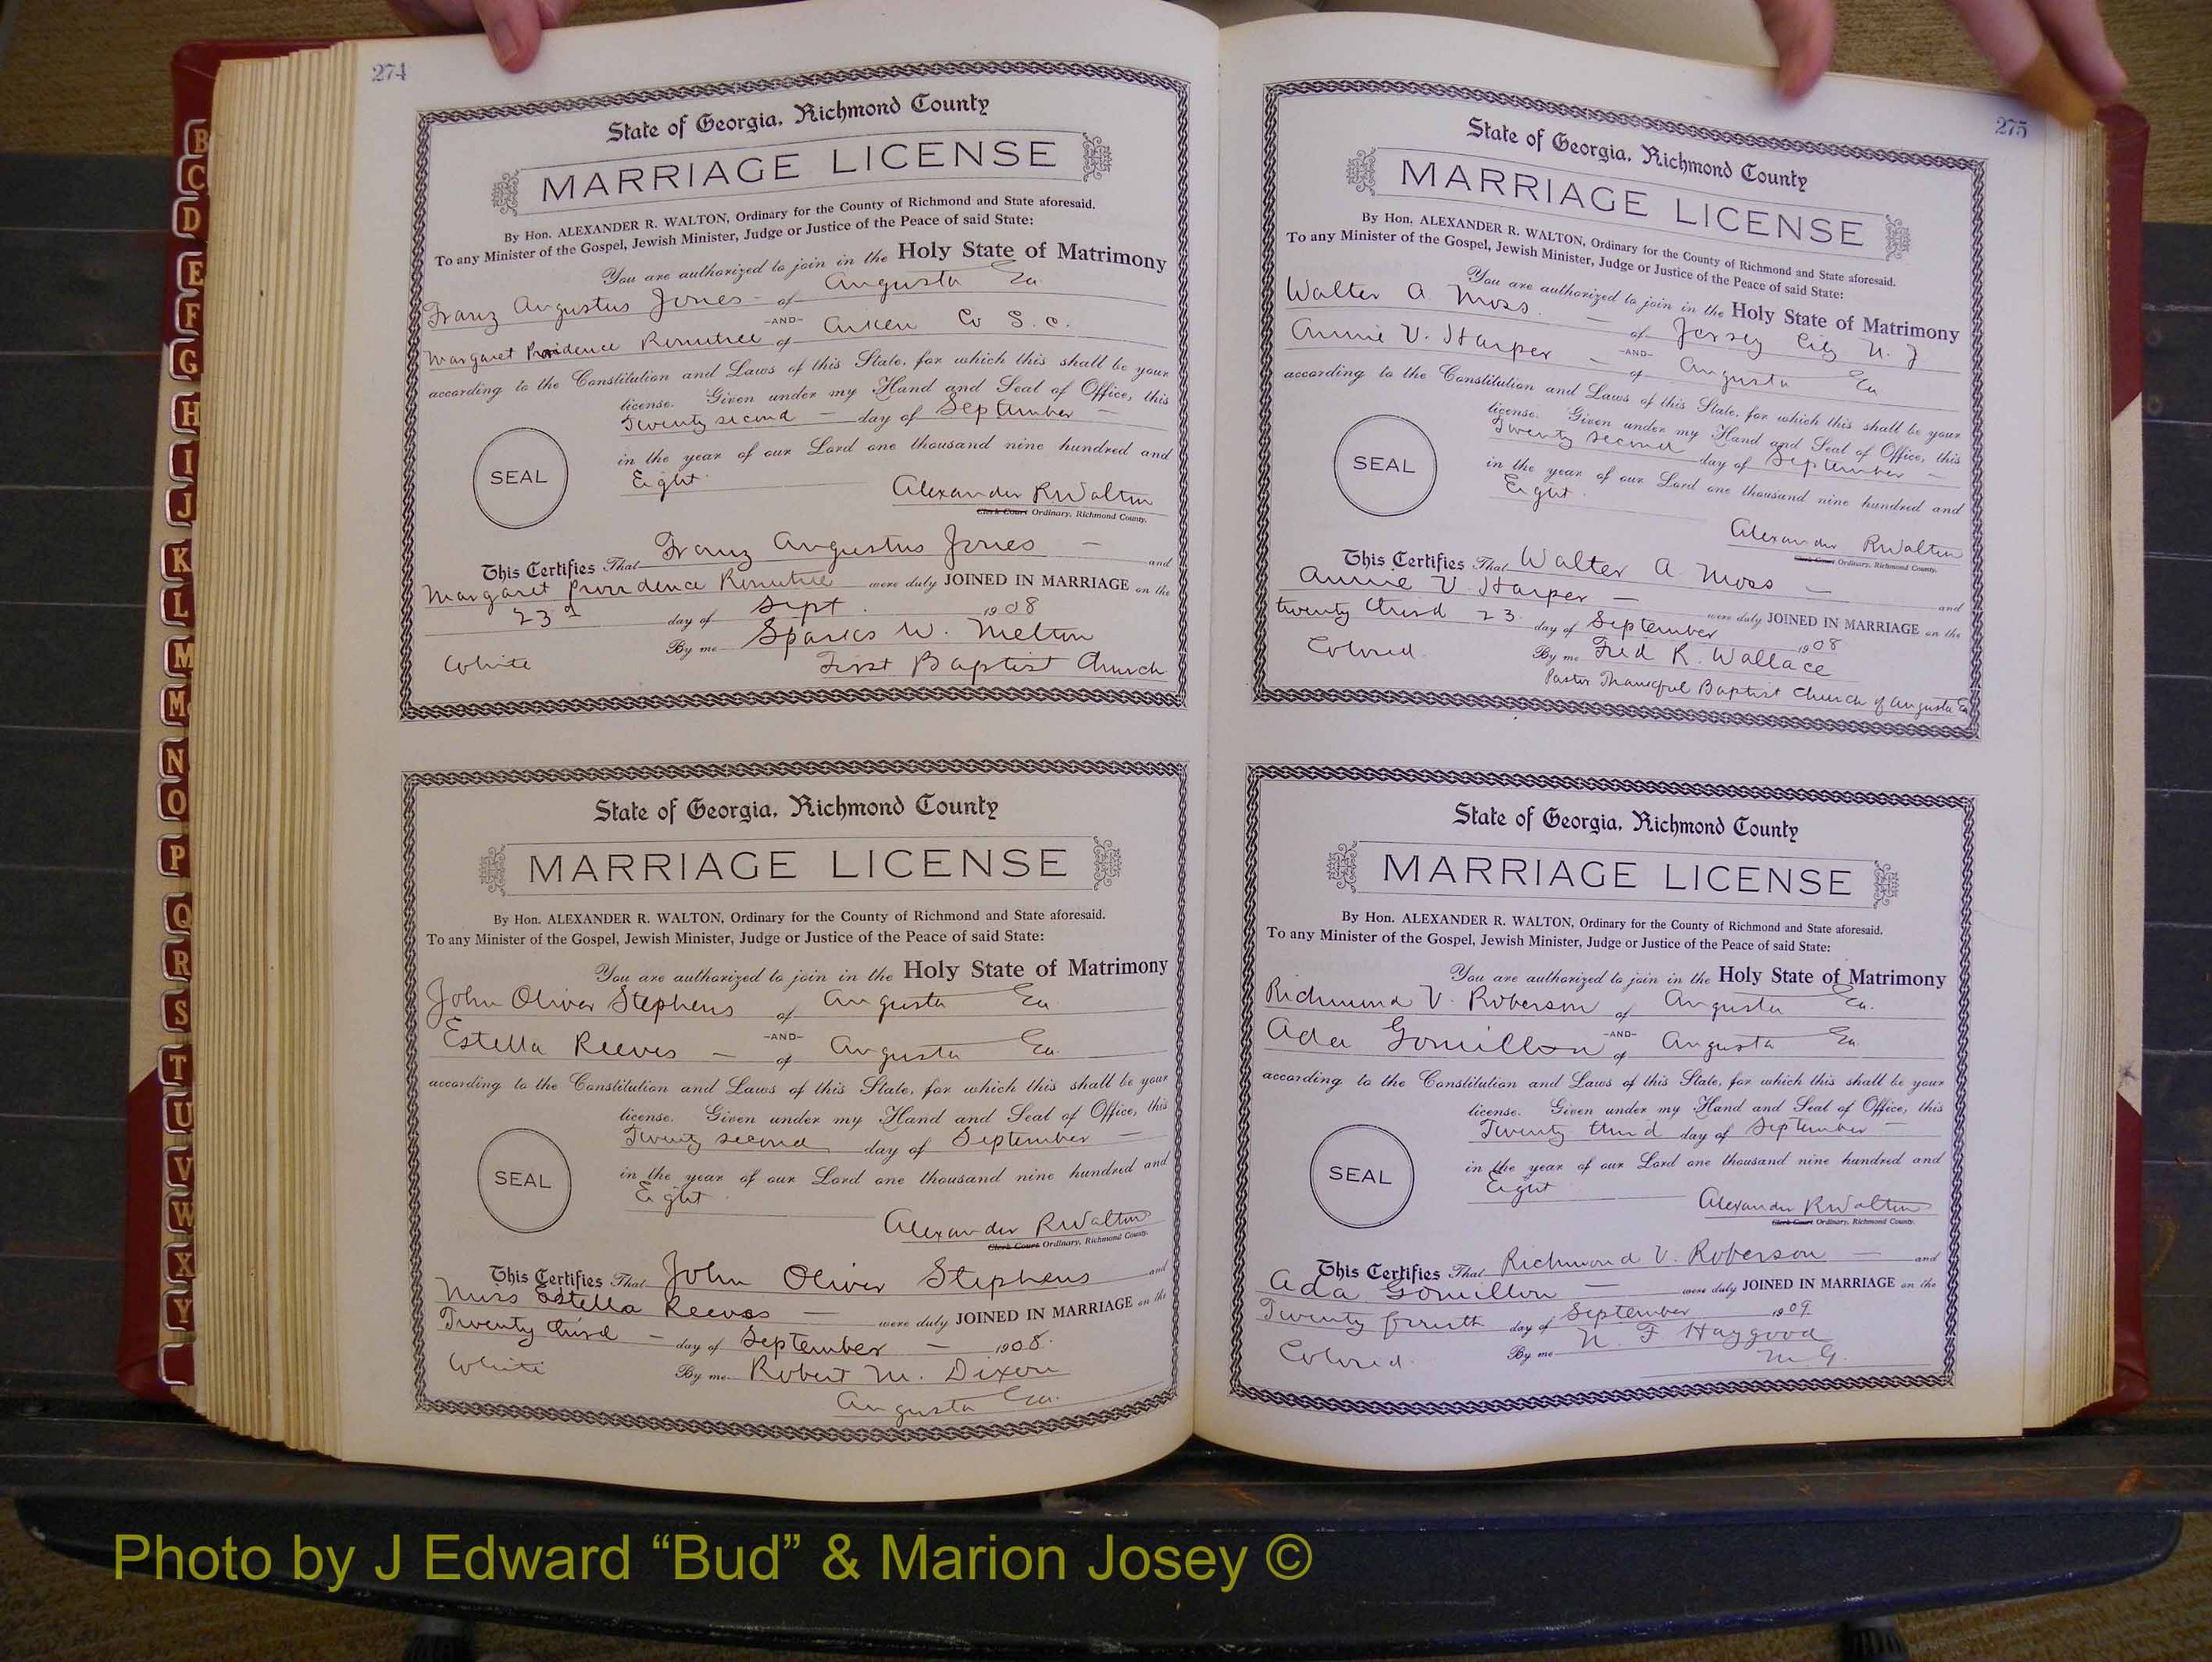 274
State of Georgia, Richmond County
MARRIAGE LICENSE
By Hon. ALEXANDER R. WALTON, Ordinary for the County of Richmond and State aforesaid.
To any Minister of the Gospel, Jewish Minister, Judge or Justice of the Peace of said State:
You are authorized to join in the Holy State of Matrimony
Franz Augustus Jones - of Augusta Ga.
-AND-
Margaret Providence Rountree of Aiken Co S. C.
according to the Constitution and Laws of this State, for which this shall be your
license. Given under my Hand and Seal of Office, this
Twenty second - day of September -
in the year of our Lord one thousand nine hundred and
Eight.
SEAL
Alexander R Walton
Clerk Court Ordinary, Richmond County.
This Certifies That Franz Augustus Jones - and
Margaret Providence Rountree were duly JOINED IN MARRIAGE on the
23d day of Sept. 1908
By me Sparks W. Melton
White First Baptist Church
State of Georgia, Richmond County
MARRIAGE LICENSE
By Hon. ALEXANDER R. WALTON, Ordinary for the County of Richmond and State aforesaid.
To any Minister of the Gospel, Jewish Minister, Judge or Justice of the Peace of said State:
You are authorized to join in the Holy State of Matrimony
John Oliver Stephens of Augusta Ga
-AND-
Estella Reeves - of Augusta Ga.
according to the Constitution and Laws of this State, for which this shall be your
license. Given under my Hand and Seal of Office, this
Twenty second day of September -
in the year of our Lord one thousand nine hundred and
Eight.
SEAL
Alexander R Walton
Clerk Court Ordinary, Richmond County.
This Certifies That John Oliver Stephens and
Miss Estella Reeves - were duly JOINED IN MARRIAGE on the
Twenty third - day of September - 1908.
White By me Robert M. Dixon
Augusta Ga.
275
State of Georgia, Richmond County
MARRIAGE LICENSE
By Hon. ALEXANDER R. WALTON, Ordinary for the County of Richmond and State aforesaid.
To any Minister of the Gospel, Jewish Minister, Judge or Justice of the Peace of said State:
You are authorized to join in the Holy State of Matrimony
Walter A. Moss. - of Jersey City N. J
-AND-
Annie V. Harper - of Augusta Ga
according to the Constitution and Laws of this State, for which this shall be your
license. Given under my Hand and Seal of Office, this
Twenty second day of September -
in the year of our Lord one thousand nine hundred and
Eight.
SEAL
Alexander R Walton
Clerk Court Ordinary, Richmond County.
This Certifies That Walter A. Moss - and
Annie V. Harper - were duly JOINED IN MARRIAGE on the
twenty third 23. day of September 1908
Colored. By me Fred R. Wallace
Pastor Thankful Baptist Church of Augusta Ga
State of Georgia, Richmond County
MARRIAGE LICENSE
By Hon. ALEXANDER R. WALTON, Ordinary for the County of Richmond and State aforesaid.
To any Minister of the Gospel, Jewish Minister, Judge or Justice of the Peace of said State:
You are authorized to join in the Holy State of Matrimony
Richmond V. Roberson of Augusta Ga.
-AND-
Ada Gomillon of Augusta Ga.
according to the Constitution and Laws of this State, for which this shall be your
license. Given under my Hand and Seal of Office, this
Twenty third day of September -
in the year of our Lord one thousand nine hundred and
Eight
SEAL
Alexander R Walton
Clerk Court Ordinary, Richmond County.
This Certifies That Richmond V. Roberson - and
Ada Gomillon - were duly JOINED IN MARRIAGE on the
Twenty fourth day of September 1909
Colored. By me N. F Haygood
M. G.
B
C
D
E
F
G
H
I
J
K
L
M
Mc
N
O
P
Q
R
S
T
U
V
W
X
Y
Photo by J Edward “Bud” & Marion Josey ©